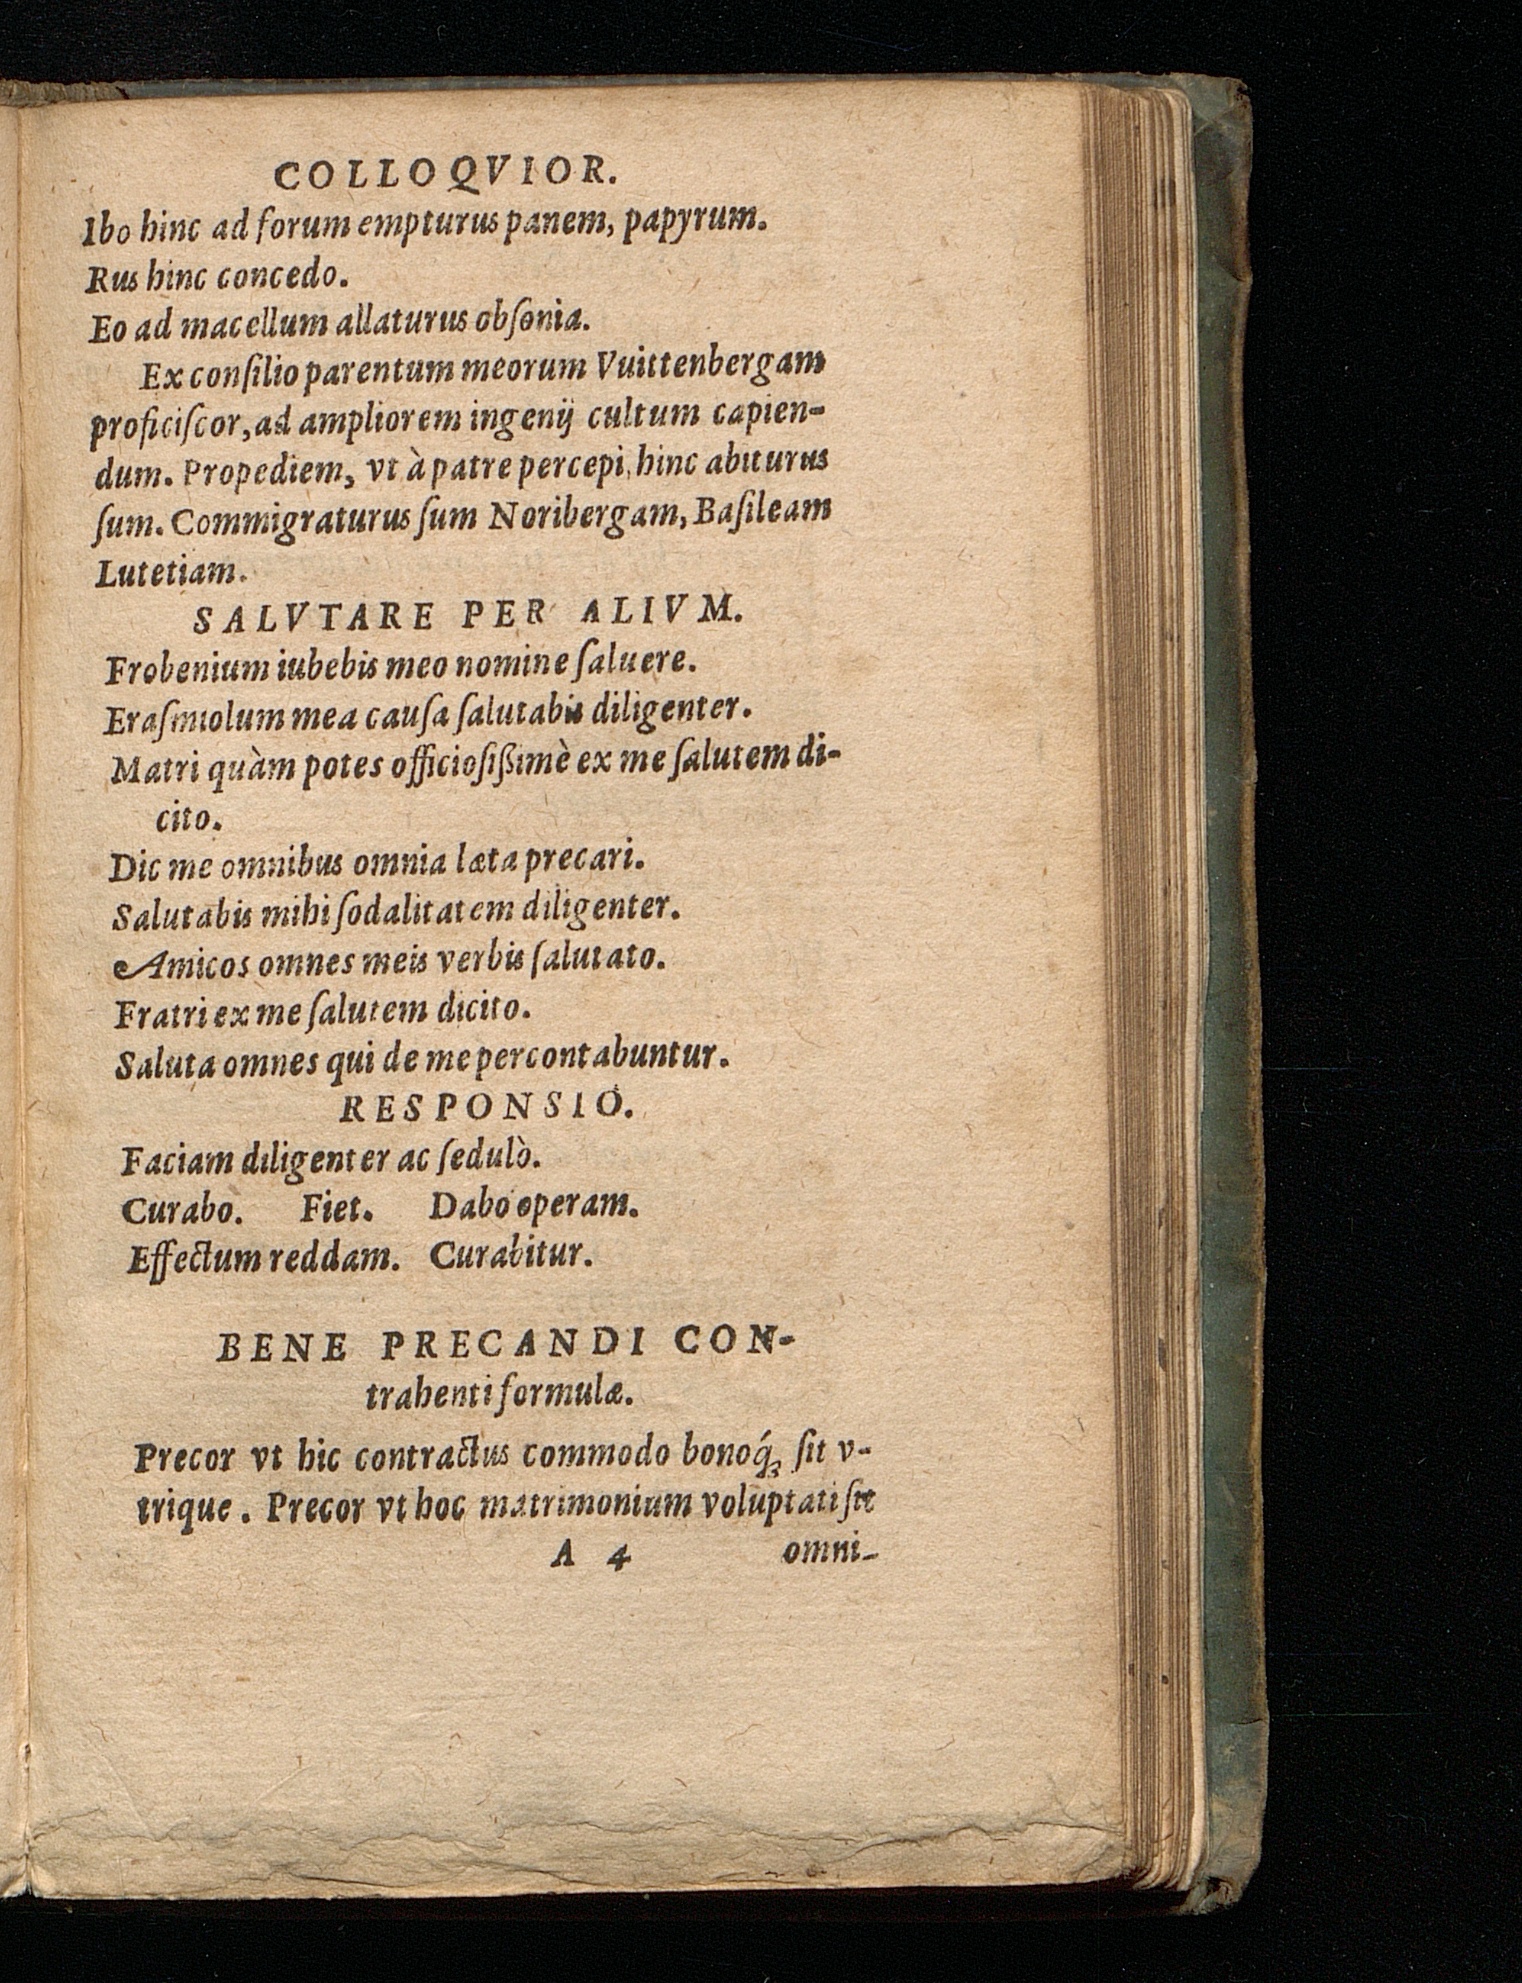 COLLOQVIOR.
Ibo hinc ad forum empturus panem, papyrum.
Rus hinc concedo.
Eo ad macellum allaturus obſonia.
Ex conſilio parentum meorum Vuittenbergam
proficiſcor, ad ampliorem ingenij cultum capien-
dum. Propediem, vt à patre percepi, hinc abiturus
ſum. Commigraturus ſum Noribergam, Baſileam
Lutetiam.
SALVTARE PER ALIVM.
Frobenium iubebis meo nomine ſaluere.
Eraſmiolum mea cauſa ſalutabis diligenter.
Matri quàm potes officioſißimè ex me ſalutem di-
cito.
Dic me omnibus omnia læta precari.
Salutabis mihi ſodalitatem diligenter.
Amicos omnes meis verbis ſalutato.
Fratri ex me ſalutem dicito.
Saluta omnes qui de me percontabuntur.
RESPONSIO.
Faciam diligenter ac ſedulò.
Curabo. Fiet. Dabo operam.
Effectum reddam. Curabitur.
BENE PRECANDI CON-
trahenti formulæ.
Precor vt hic contractus commodo bonoq́ꝫ ſit v-
trique. Precor vt hoc matrimonium voluptati ſit
A 4 omni-